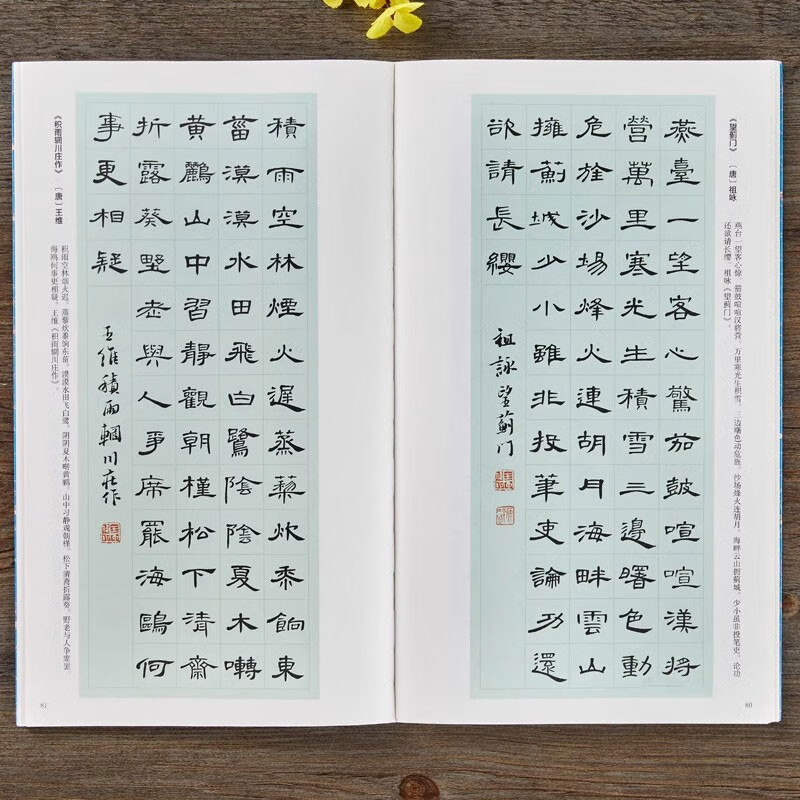 《望蓟门》 〔唐〕祖咏
燕台一望客心惊,笳鼓喧喧汉将营。万里寒光生积雪,三边曙色动危旌。沙场烽火连胡月,海畔云山拥蓟城。少小虽非投笔吏,论功
还欲请长缨。 祖咏《望蓟门》。
燕臺一望客心驚笳鼓喧喧漢將
營萬里寒光生積雪三邊曙色動
危旌沙場烽火連胡月海畔雲山
擁薊城少小雖非投筆吏論功還
欲請長纓
祖詠望薊门
80
積雨空林煙火遲蒸藜炊黍餉東
菑漠漠水田飛白鷺陰陰夏木囀
黃鸝山中習靜觀朝槿松下清齋
折露葵野老與人爭席罷海鷗何
事更相疑
王維積雨輞川莊作
《积雨辋川庄作》 〔唐〕王维
积雨空林烟火迟,蒸藜炊黍饷东菑。漠漠水田飞白鹭,阴阴夏木啭黄鹂。山中习静观朝槿,松下清斋折露葵。野老与人争席罢
海鸥何事更相疑。王维《积雨辋川庄作》。
81